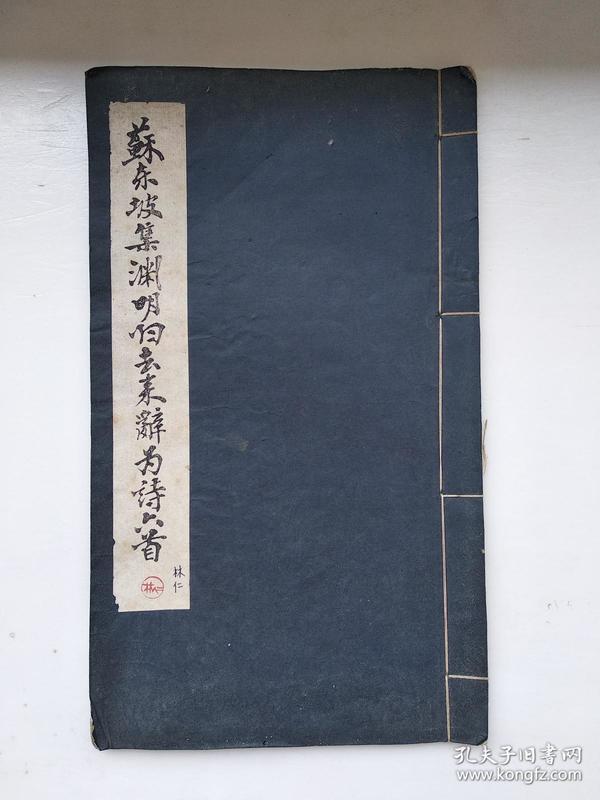 蘇东坡集渊明归去来辭为詩六首
林仁
林仁
孔夫子旧书网
www.kongfz.com